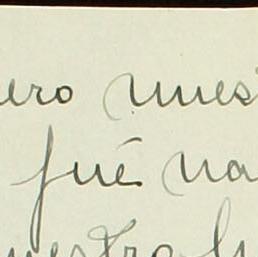 ero nues
fué na
uestra h